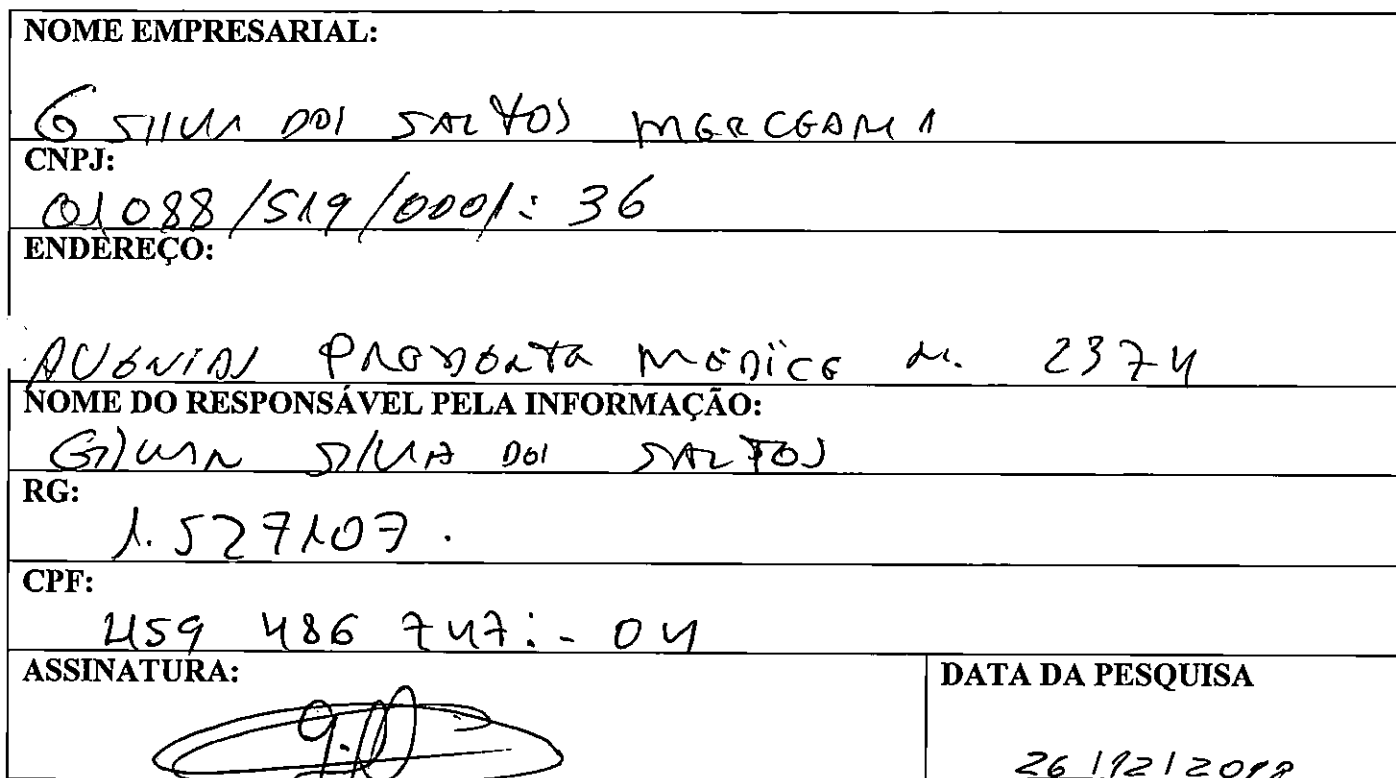 NOME EMPRESARIAL:
G SILVA DOS SANTOS MERCEARIA
CNPJ:
01088/519/0001: 36
ENDEREÇO:
AVENIDA PRESIDENTE MEDICE N. 2374
NOME DO RESPONSÁVEL PELA INFORMAÇÃO:
SILVA DOS SANTOS
RG:
1.527107.
CPF:
459 486 747:- 04
ASSINATURA:
DATA DA PESQUISA
26/12/2018